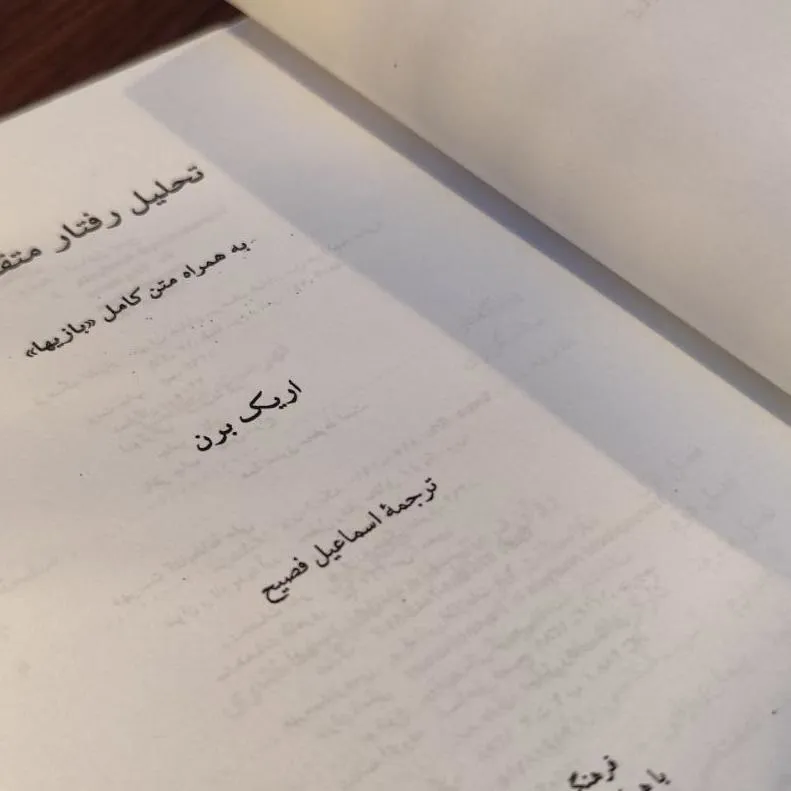 تحلیل رفتار
به همراه متن کامل «بازیها»
اریک برن
ترجمهٔ اسماعیل فصیح